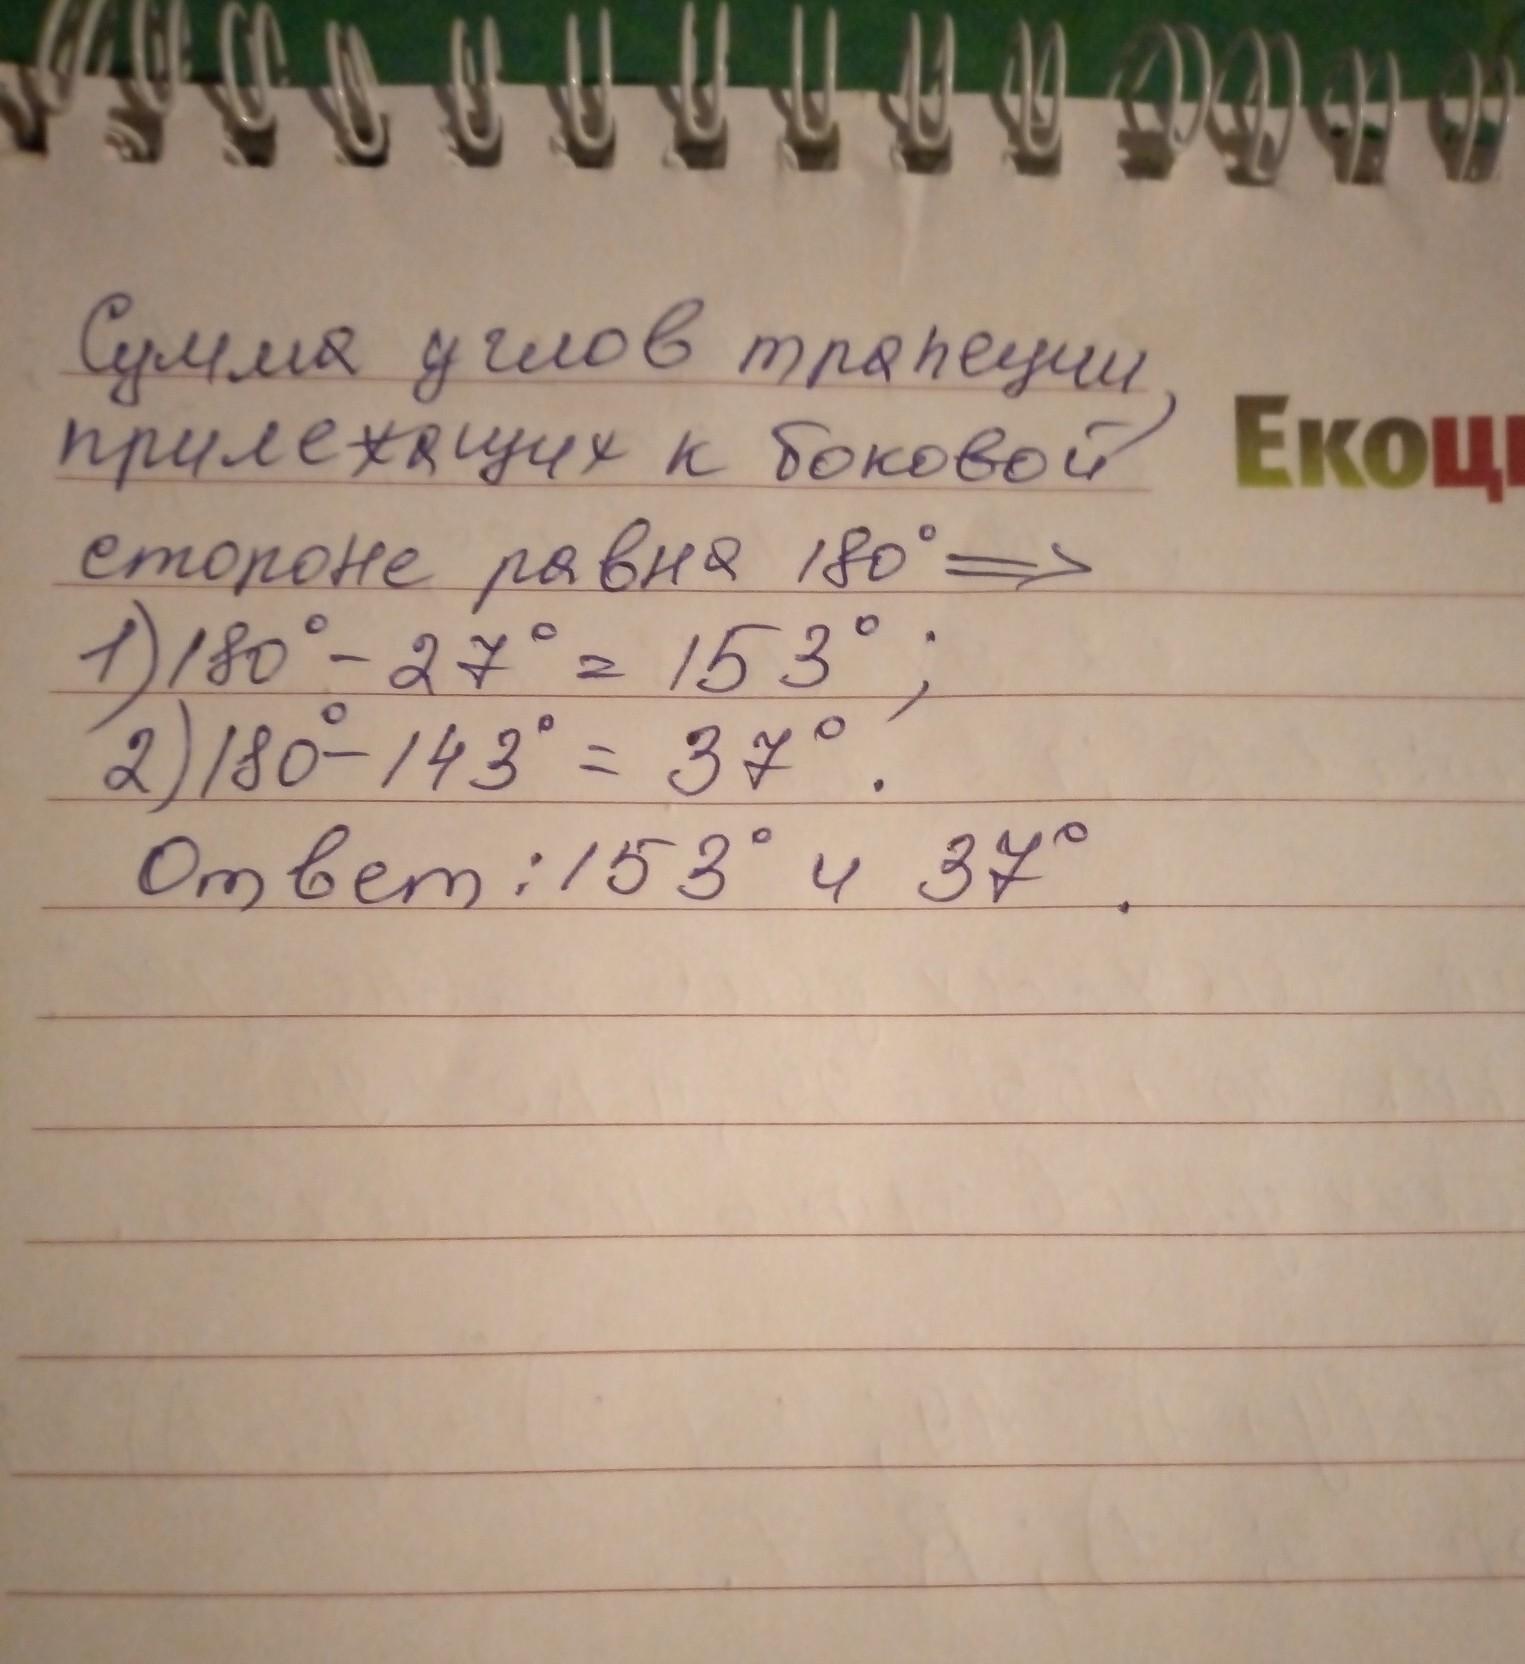 Сумма углов трапеции,
прилежащих к боковой
Екоц
стороне равна 180° =>
1) 180° - 27° = 153° ;
2) 180° - 143° = 37° .
Ответ : 153° и 37° .